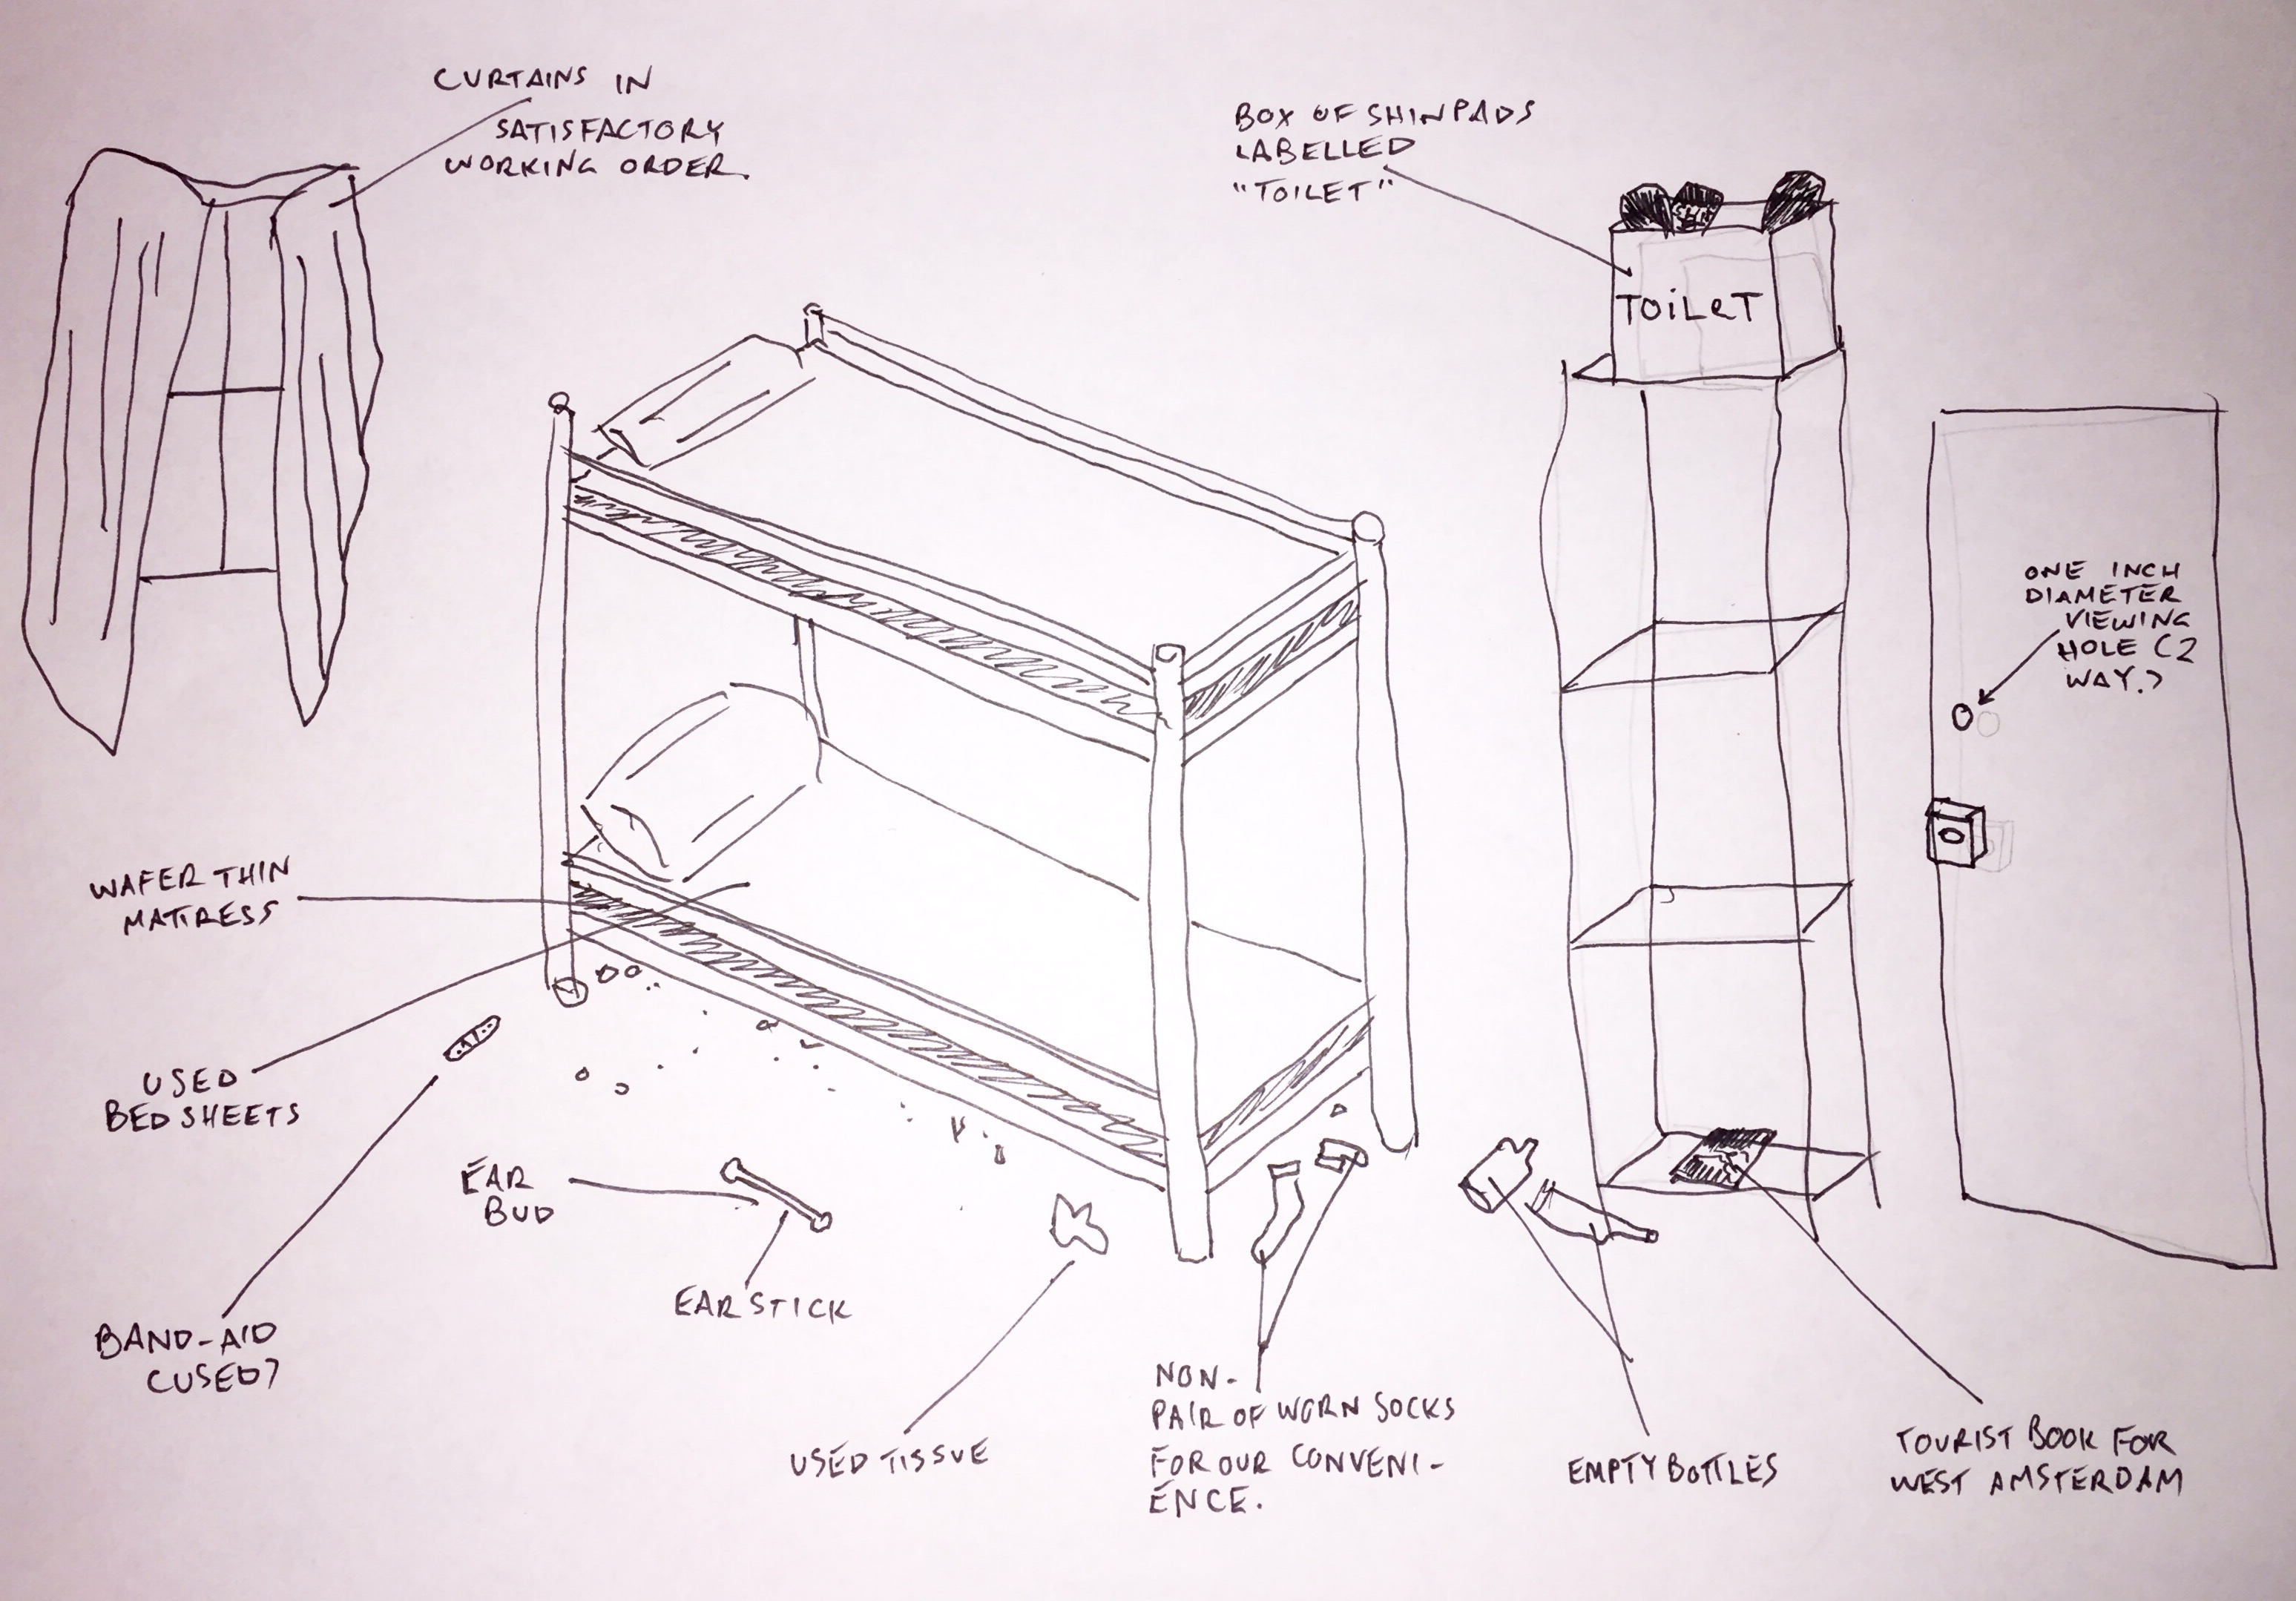 CURTAINS IN
SATISFACTORY
WORKING ORDER.
BOX OF SHINPADS
LABELLED
"TOILET"
TOiLeT
ONE INCH
DIAMETER
VIEWING
HOLE (2
WAY.)
WAFER THIN
MATRESS
USED
BED SHEETS
BAND-AID
(USED)
EAR
BUD
EAR STICK
USED TISSUE
NON-
PAIR OF WORN SOCKS
FOR OUR CONVENI-
ENCE.
EMPTY BOTTLES
TOURIST BOOK FOR
WEST AMSTERDAM